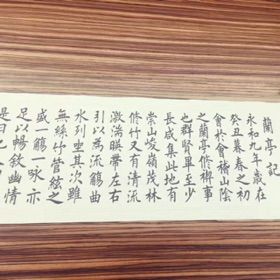 蘭亭記
永和九年歲在
癸丑暮春之初
會於會稽山陰
之蘭亭脩稧事
也群賢畢至少
長咸集此地有
崇山峻嶺茂林
修竹又有清流
激湍暎帶左右
引以為流觴曲
水列坐其次雖
無絲竹管絃之
盛一觴一詠亦
足以暢敘幽情
是日也